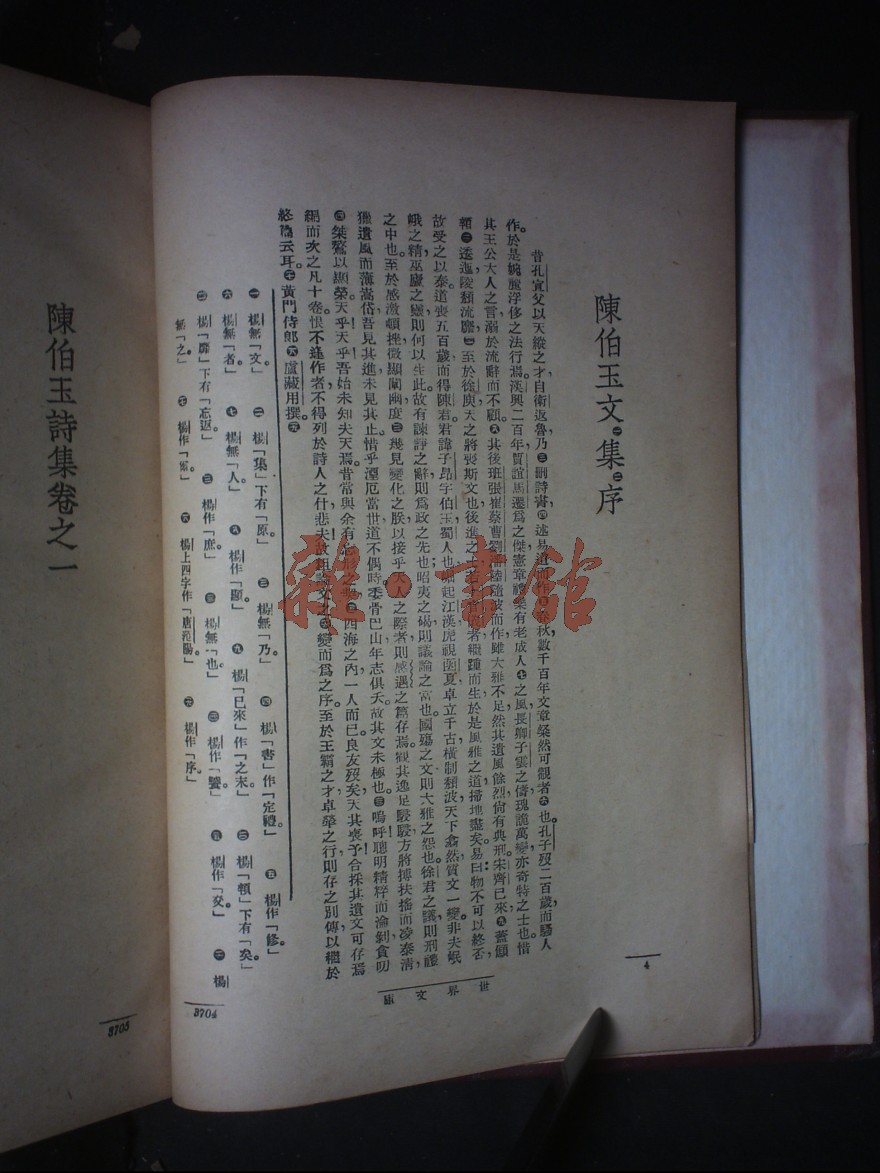 陳伯玉文㊀集㊁序
昔孔宣父以天縱之才自衛返魯乃㊂刪詩書㊃述易道而作㊄春秋數千百年文章粲然可觀者㊅也孔子歿二百歲而騷人
作於是婉麗浮侈之法行焉漢興二百年賈誼馬遷爲之傑憲章禮樂有老成人㊆之風長卿子雲之儔瑰詭萬變亦奇特之士也惜
其王公大人之言溺於流辭而不顧㊇其後班張崔蔡曹劉潘陸隨波而作雖大雅不足然其遺風餘烈尙有典刑宋齊已來㊈蓋顦
顇逶迤陵頹流靡至於徐庾天之將喪斯文也後進之士若上官儀者繼踵而生於是風雅之道掃地盡矣易曰物不可以終否
故受之以泰道喪五百歲而得陳君君諱子昂字伯玉蜀人也崛起江漢虎視函夏卓立千古橫制頹波天下翕然質文一變非夫岷
峨之精巫廬之靈則何以生此故有諫諍之辭則爲政之先也昭夷之碣則議論之當也國殤之文則大雅之怨也徐君之議則刑禮
之中也至於感激頓挫微顯闡幽庶幾見變化之朕以接乎天人之際者則感遇之篇存焉觀其逸足駸駸方將搏扶搖而凌泰淸
獵遺風而薄嵩岱吾見其進未見其止惜乎湮厄當世道不偶時委骨巴山年志俱夭故其文未極也嗚呼聰明精粹而淪剝貪叨
桀驁以顯榮天乎天乎吾始未知夫天焉昔嘗與余有忘形之契四海之內一人而已良友歿矣天其喪予今採其遺文可存焉
編而次之凡十卷恨不逢作者不得列於詩人之什悲夫故粗論文之變而爲之序至於王霸之才卓犖之行則存之別傳以繼於
終篇云耳黃門侍郎盧藏用撰
㊀楊無「文」㊁楊「集」下有「原」㊂楊無「乃」㊃楊「書」作「定禮」㊄楊作「修」
㊅楊無「者」㊆楊無「人」㊇楊作「顧」㊈楊「已來」作「之末」楊「顇」下有「矣」
楊「靡」下有「忘返」楊作「庶」楊無「也」楊作「饕」楊作「交」楊
無「之」楊作「篇」楊上四字作「唐范陽」楊作「序」
4
世界文庫
3704
陳伯玉詩集卷之一
3705
雜·書館